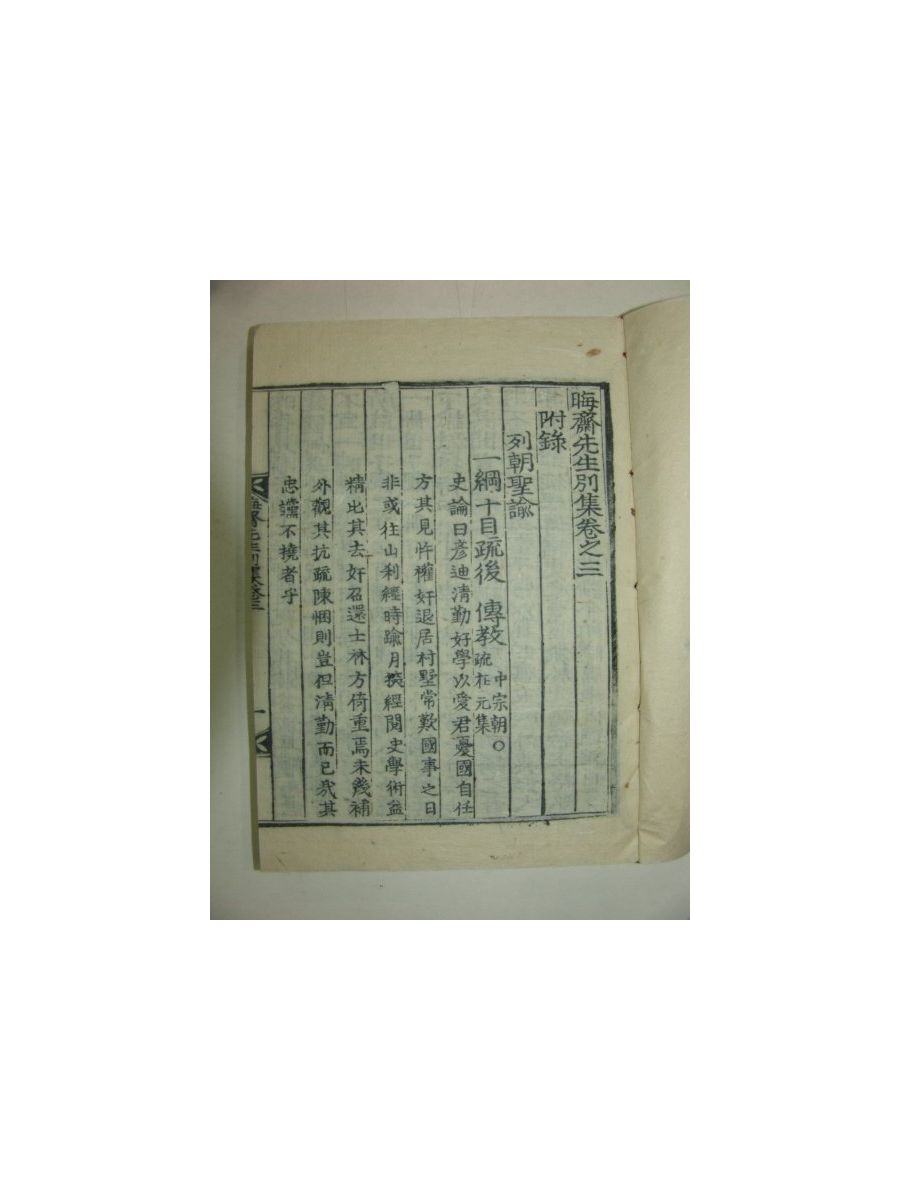 晦齋先生別集卷之三
附錄
列朝聖諭
一綱十目疏後 傳教 中宗朝○疏在元集
史論曰彦迪清勤好學以愛君憂國自任
方其見忤權奸退居村墅常歎國事之日
非或往山刹經時踰月探經閱史學術益
精比其去奸召還士林方倚重焉未幾補
外觀其抗疏陳悃則豈但清勤而已哉其
忠讜不撓者乎